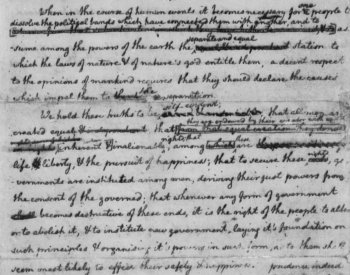 When in the course of human events it becomes necessary for one people to
dissolve the political bands which have connected them with another, and to
as-
separate and equal
sume among the powers of the earth the station to
which the laws of nature & of nature's god entitle them, a decent respect
to the opinions of mankind requires that they should declare the causes
which impel them to the separation.
self-evident;
We hold these truths to be that all men are
created equal that
they are endowed by their creator with
inherent & inalienable among are
life, liberty, & the pursuit of happiness; that to secure these go-
vernments are instituted among men, deriving their just powers from
the consent of the governed; that whenever any form of government
becomes destructive of these ends, it is the right of the people to alter
or to abolish it, & to institute new government, laying it's foundation on
such principles & organising it's powers in such form, as to them shall
seem most likely to effect their safety & happiness. prudence indeed